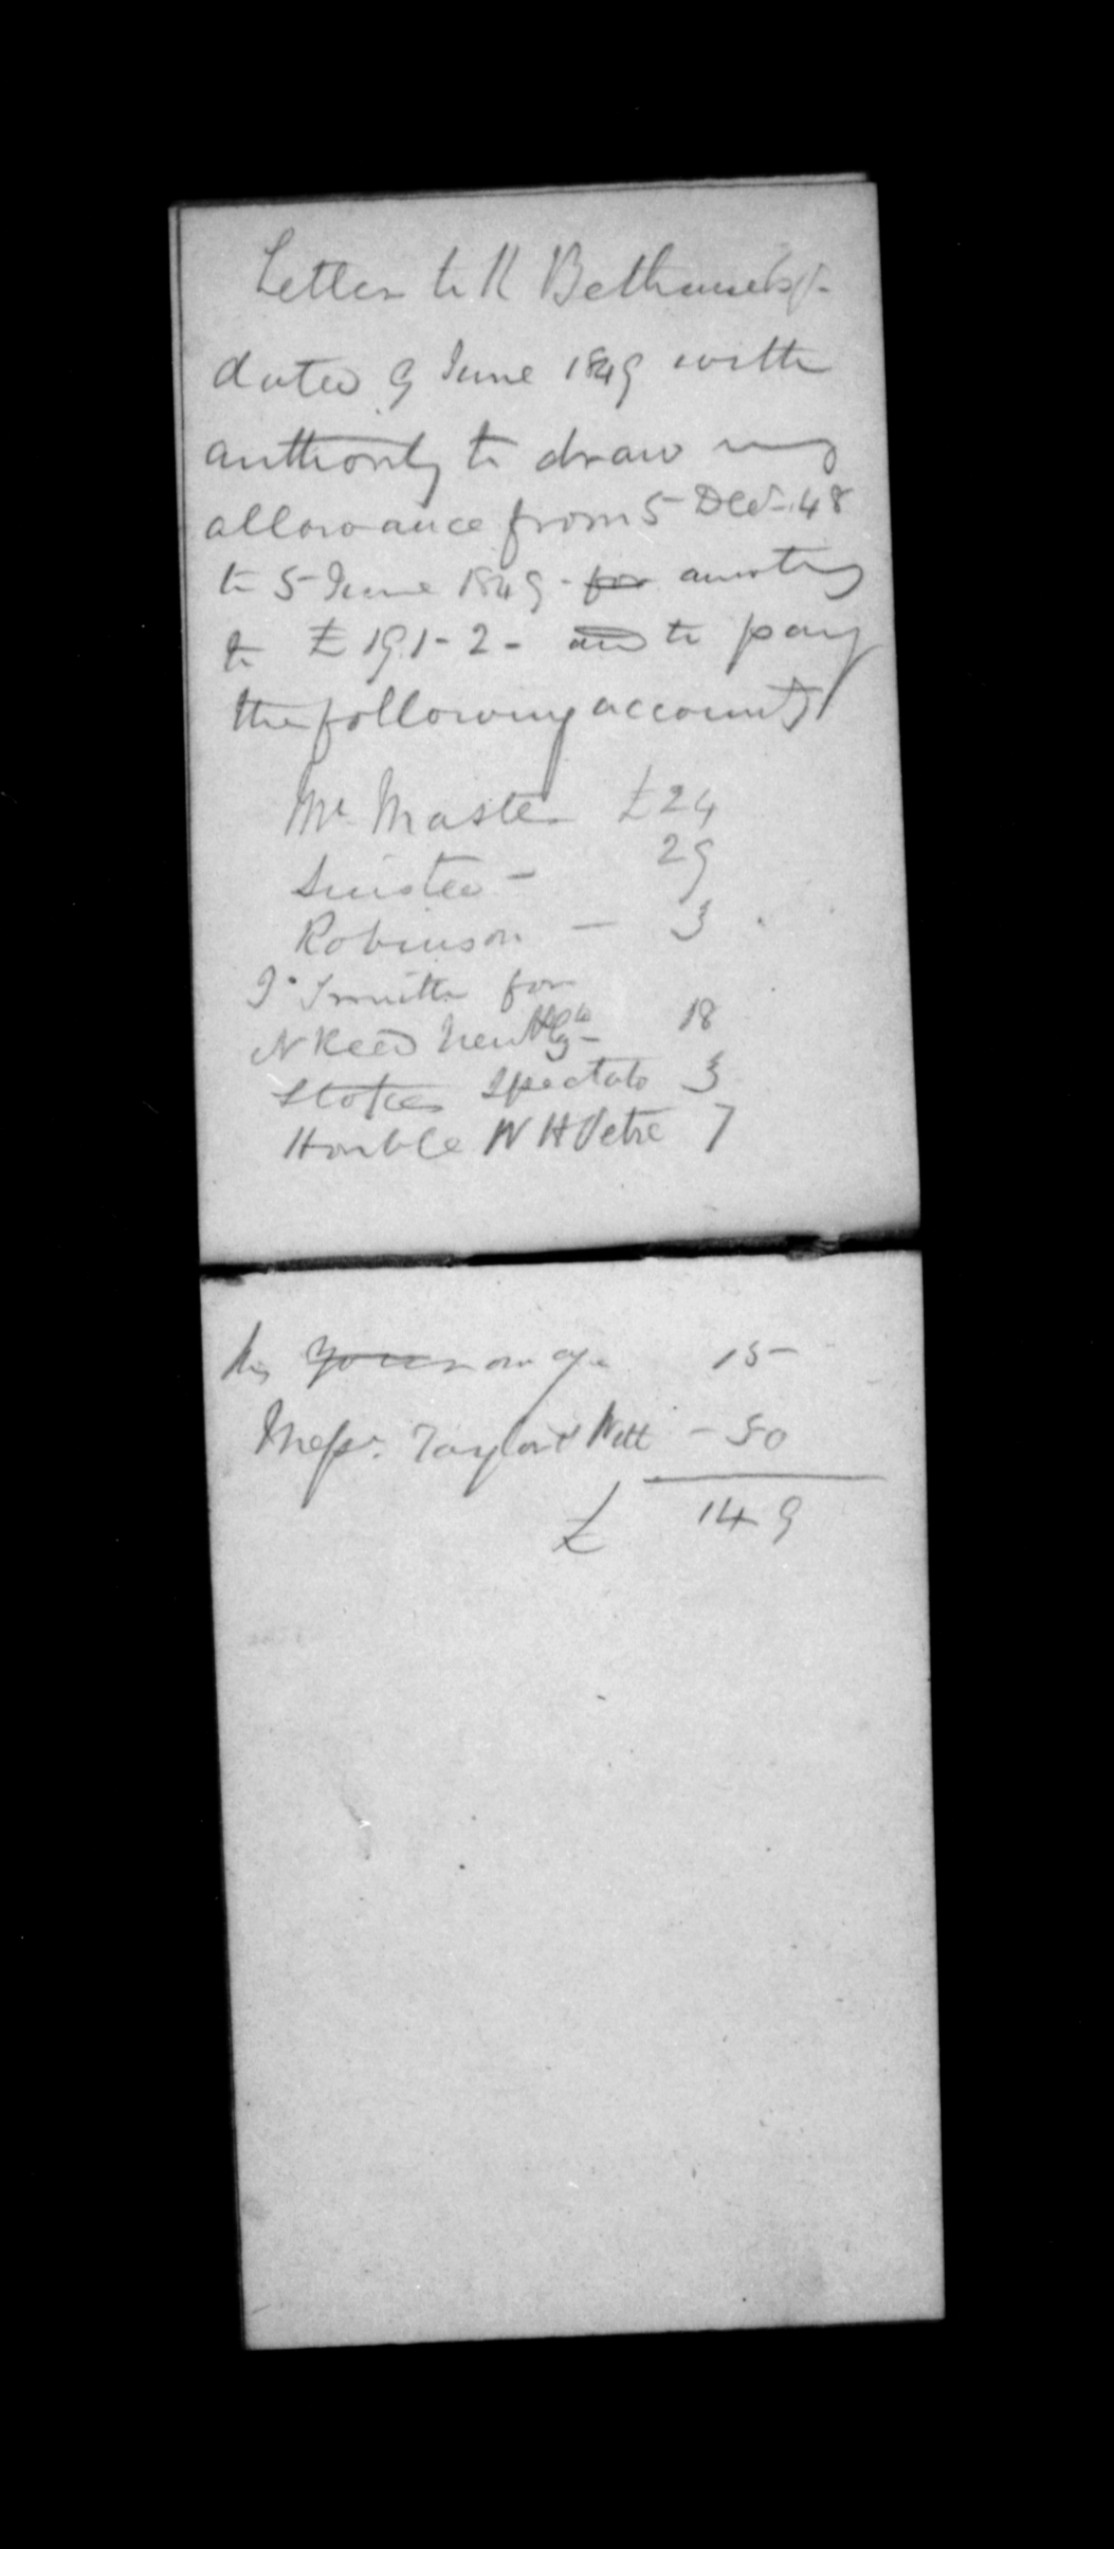 Letter to R Bethune Esqr
dated 9 June 1849 with
authority to draw my
allowance from 5 Decr. 48
to 5 June 1849 - for amoting
to £191-2- and to pay
the following accounts
Mr Master £24
- 29
Robinson - 3
Jo Smith for
N Reed 18
Stokes Spectator 3
Honble W H Petre 7
My your own 15
Messrs. Taylor Watt - 50
£ 149